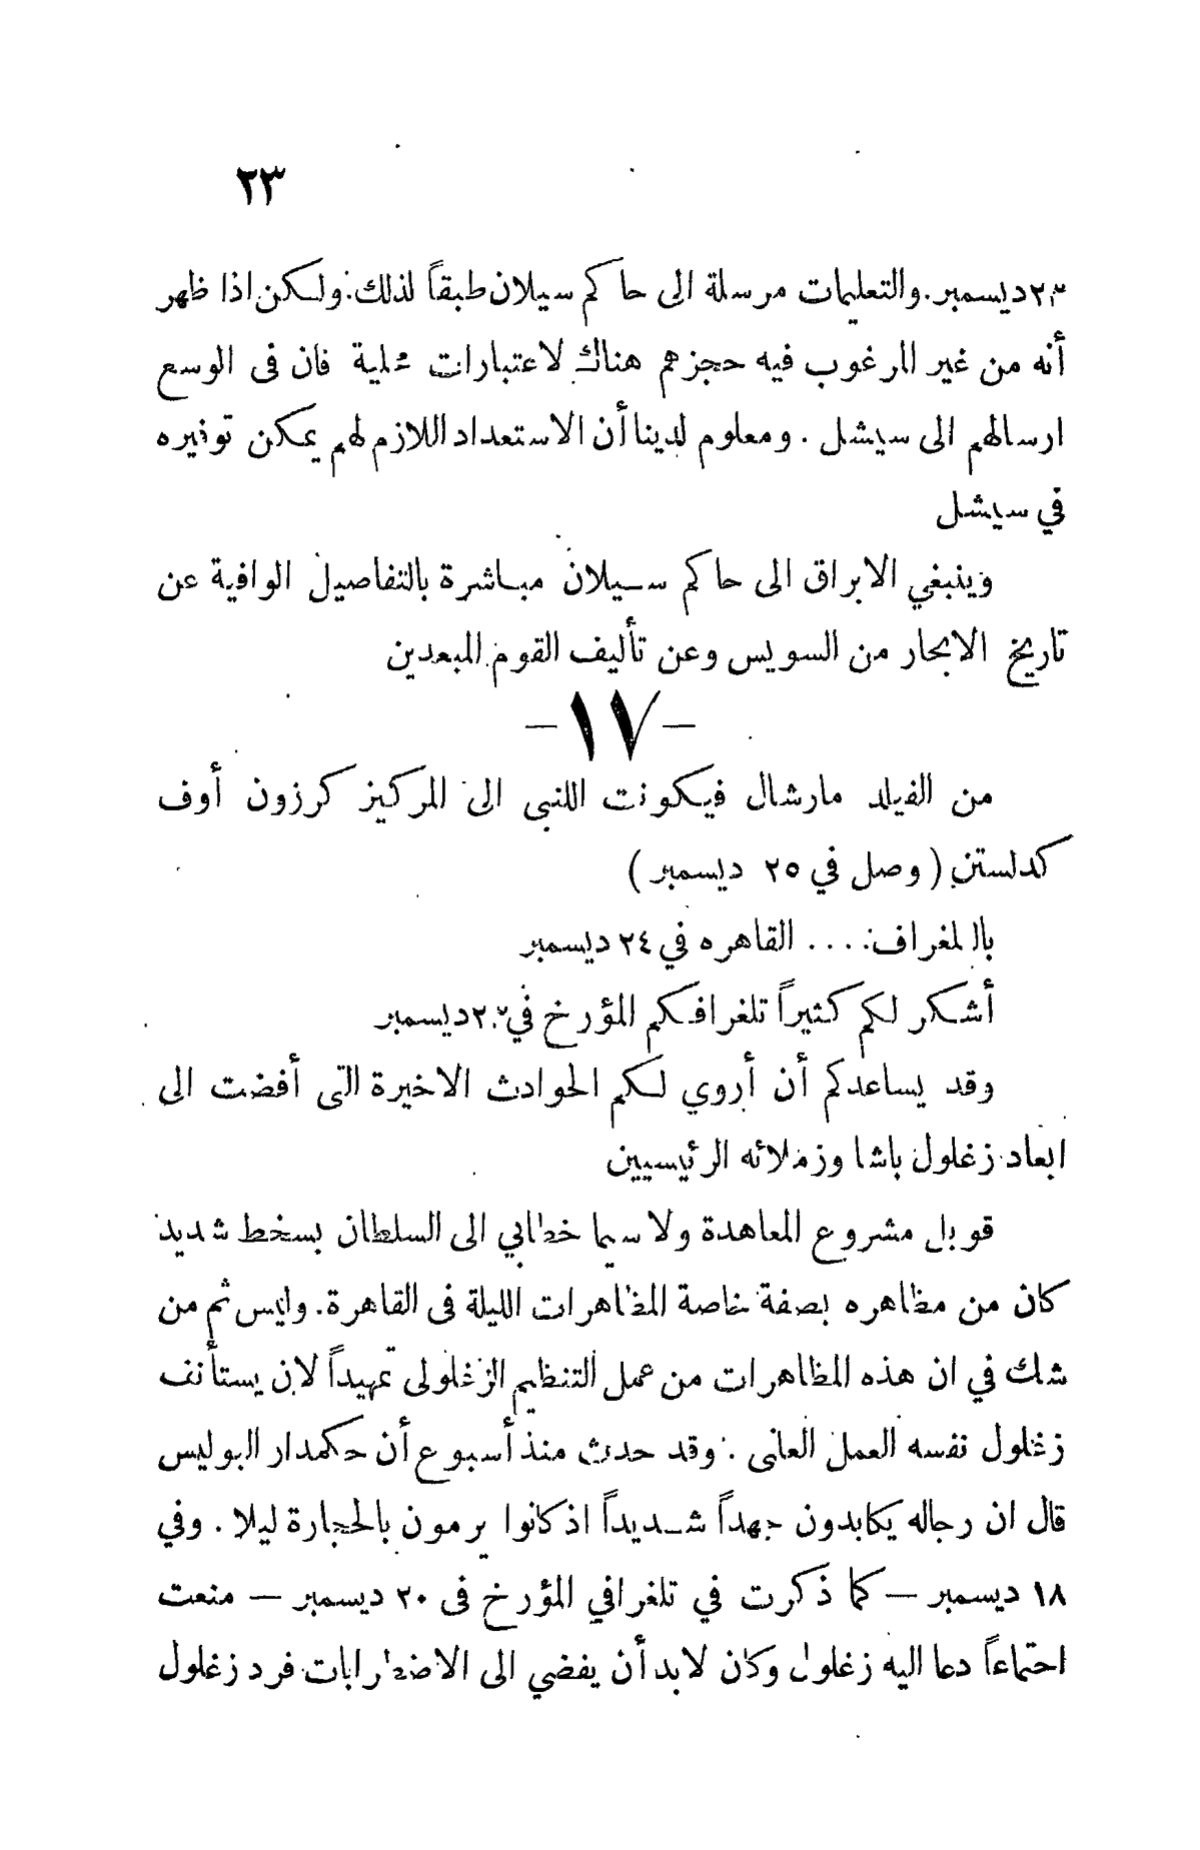 ٢٣
٢٣ ديسمبر. والتعليمات مرسلة الى حاكم سيلان طبقاً لذلك. ولكن اذا ظهر
أنه من غير المرغوب فيه حجزهم هناك لاعتبارات محلية فان فى الوسع
ارسالهم الى سيشل . ومعلوم لدينا أن الاستعداد اللازم لهم يمكن توفيره
في سيشل
وينبغي الابراق الى حاكم سيلان مباشرة بالتفاصيل الوافية عن
تاريخ الابحار من السويس وعن تأليف القوم المبعدين
— ١٧ —
من الفيلد مارشال فيكونت اللنبى الى المركيز كرزون أوف
كدلستن ( وصل في ٢٥ ديسمبر )
بالتلغراف: ... القاهره في ٢٤ ديسمبر
أشكر لكم كثيراً تلغرافكم المؤرخ في ديسمبر
وقد يساعدكم أن أروي لكم الحوادث الاخيرة التى أفضت الى
ابعاد زغلول باشا وزملائه الرئيسيين
قوبل مشروع المعاهدة ولا سيما خطابي الى السلطان بسخط شديد
كان من مظاهره بصفة خاصة المظاهرات الليلة فى القاهرة. وليس ثم من
شك في ان هذه المظاهرات من عمل التنظيم الزغلولى تمهيداً لان يستأنف
زغلول نفسه العمل العلنى . وقد حدث منذ أسبوع أن حكمدار البوليس
قال ان رجاله يكابدون جهداً شديداً اذ كانوا يرمون بالحجارة ليلا . وفي
١٨ ديسمبر — كما ذكرت في تلغرافي المؤرخ فى ٢٠ ديسمبر — منعت
احتماعاً دعا اليه زغلول وكان لابد أن يفضي الى الاضطرابات فرد زغلول